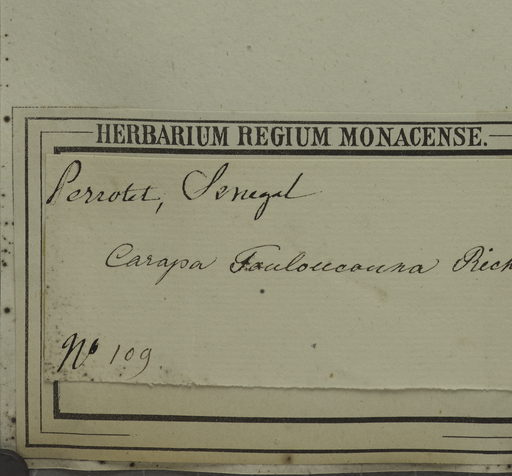 HERBARIUM REGIUM MONACENSE.
Perrotet, Senegal
Carapa Touloucouna Rich
Nº 109